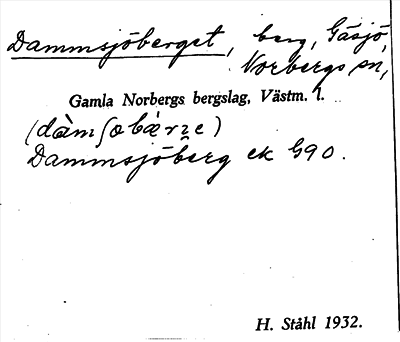 Dammsjöberget, berg, Gåsjö,
Norbergs sn,
Gamla Norbergs bergslag, Västm. l.
Dammsjöberg ek G90.
H. Ståhl 1932.